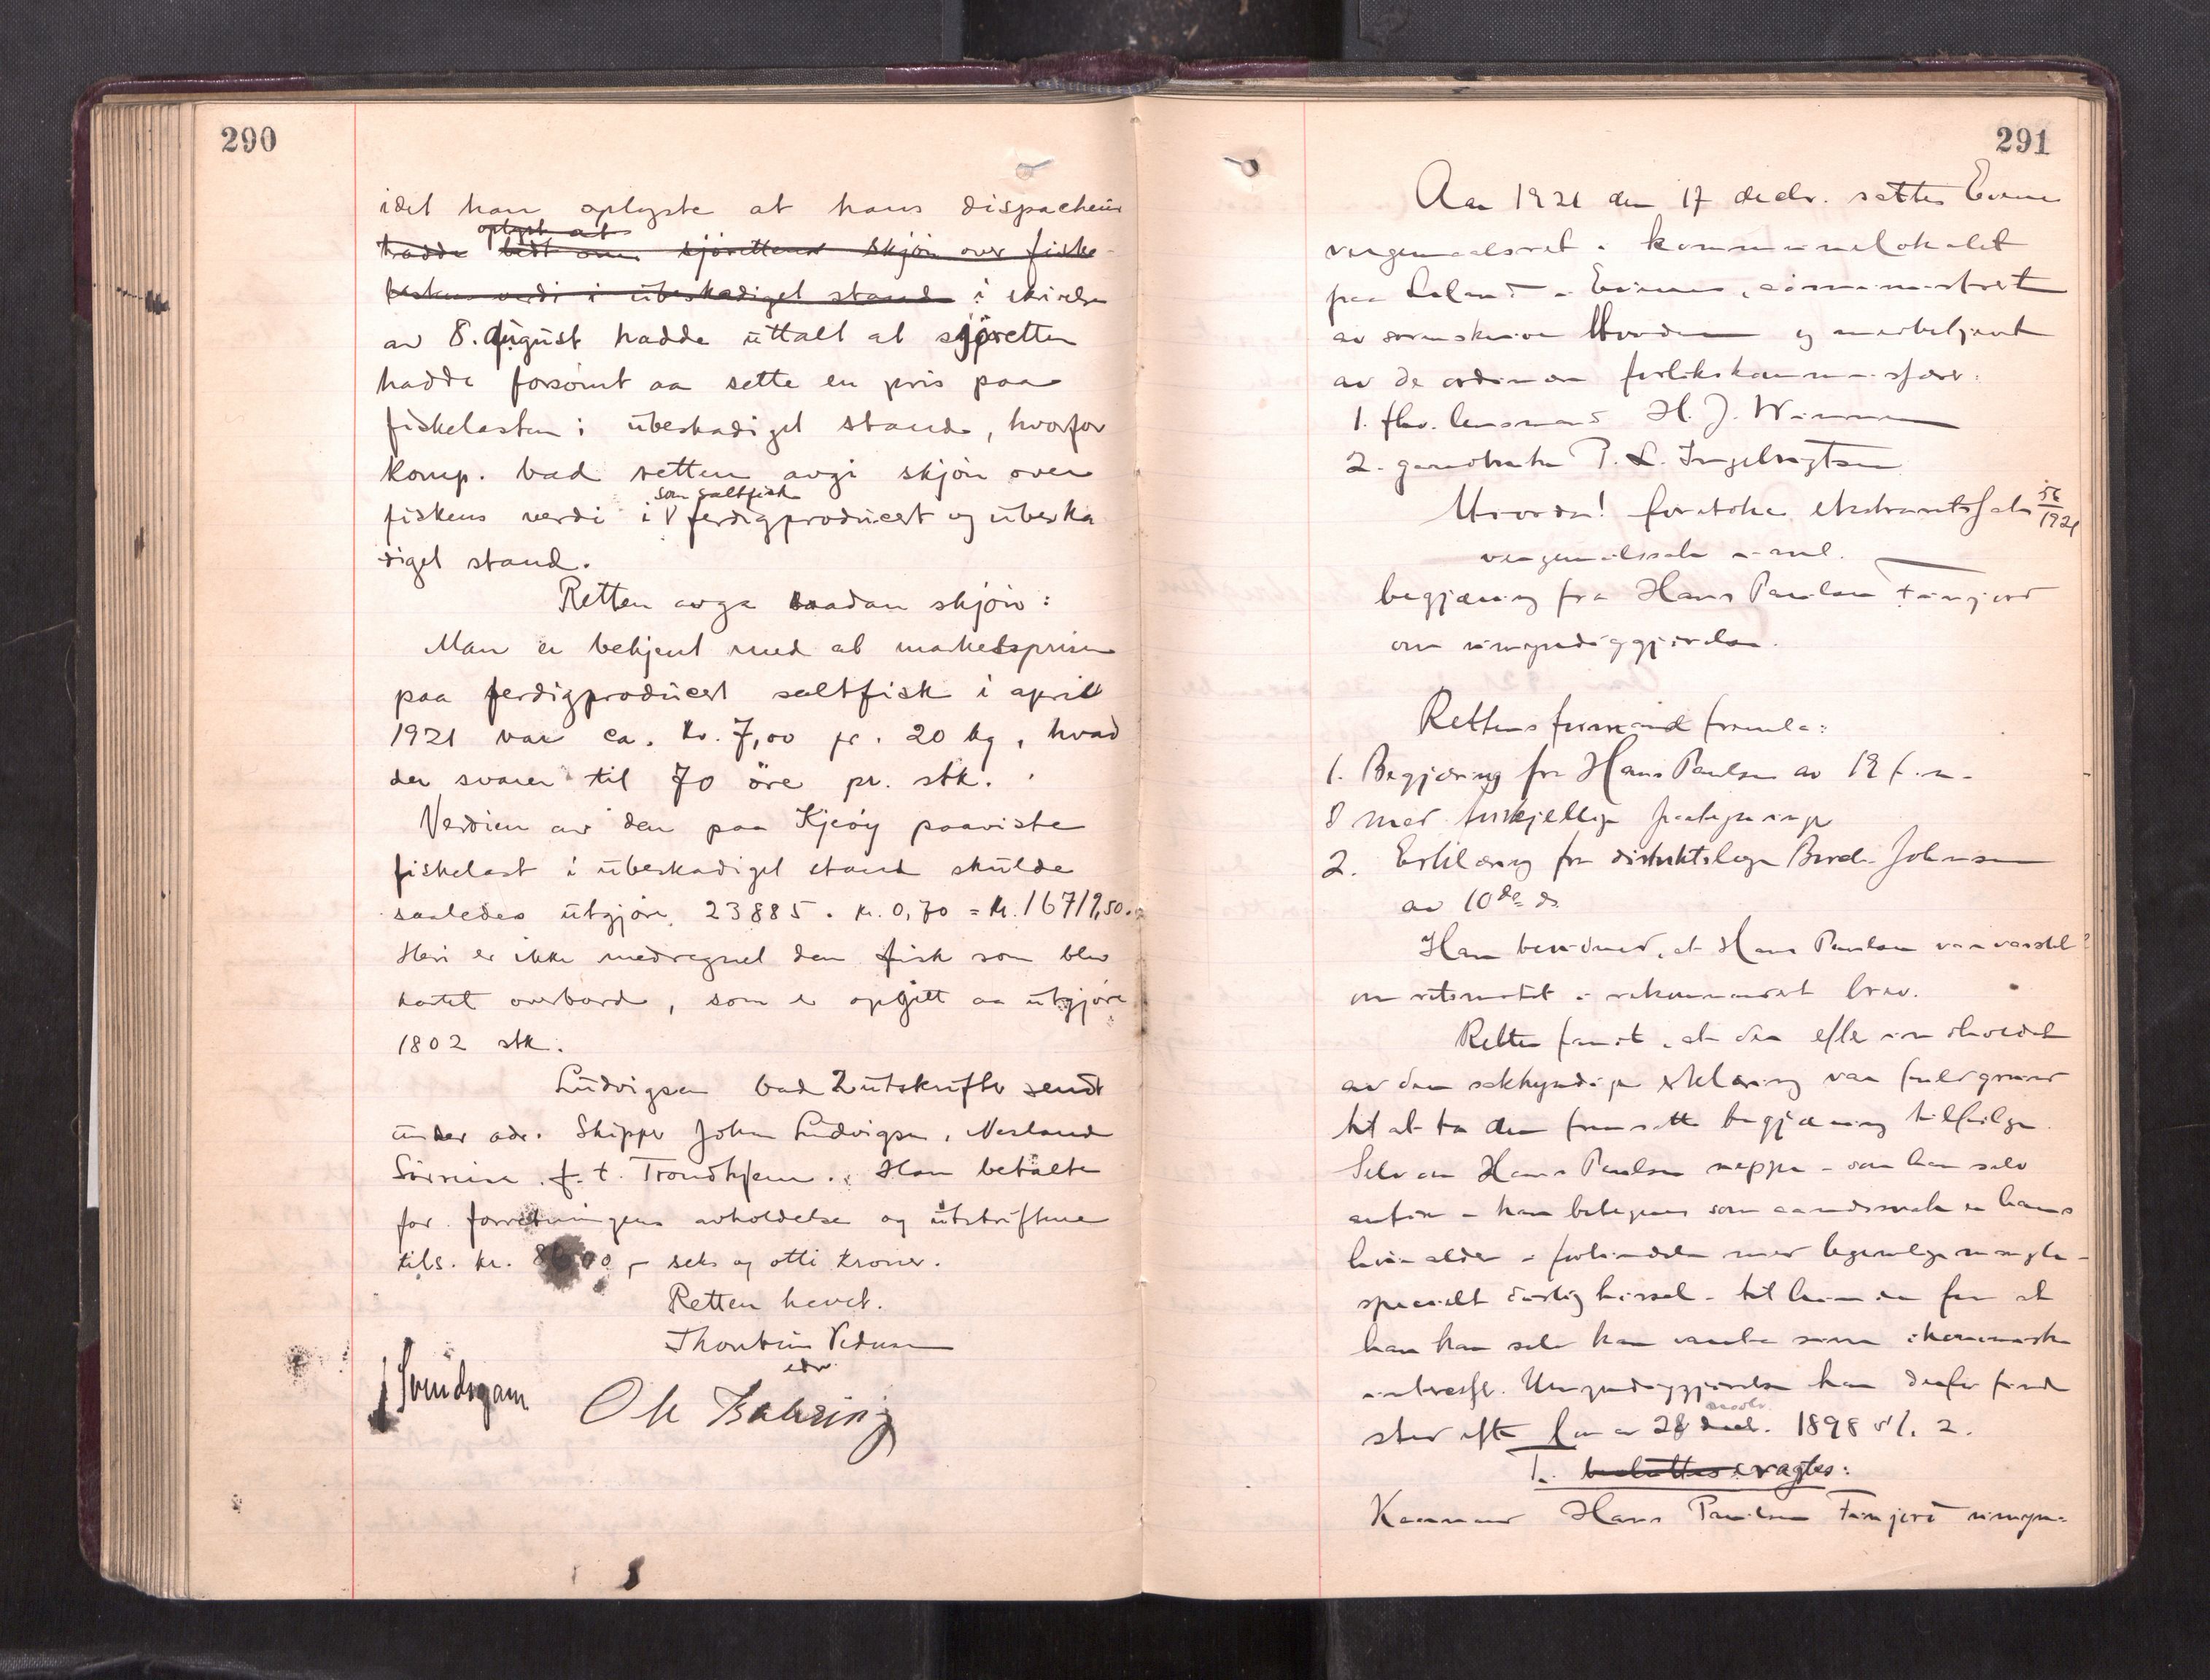 290
idet han oplyste at hans dispacheur
oplyst at
hadde bedt om sjörettens skjön over fiske-
fiskens verdi i ubeskadiget stand i skrivelse
av 8. august hadde uttalt at sjöretten
hadde forsömt aa sette en pris paa
fiskelasten i ubeskadiget stand, hvorfor
komp. bad retten avgi skjön over
som saltfisk
fiskens verdi i ferdigproducert og ubeska
diget stand.
Retten avga saadan skjön:
Man er bekjent med at markedsprisen
paa ferdigproducert saltfisk i april
1921 var ca. kr. 7,00 pr. 20 kg, hvad
der svarer til 70 öre pr. stk.
Verdien av den paa Kjeöy paaviste
fiskelast i ubeskadiget stand skulde
saaledes utgjöre 23885 . kr. 0,70 = kr. 16719,50.
Heri er ikke medregnet den fisk som blev
kastet overbord, som er opgitt aa utgjöre
1802 stk.
Ludvigsen bad 2 utskrifter sendt
under adr. Skipper John Ludvigsen, Nesland
f. t. Trondhjem. Han betalte
for forretningens avholdelse og utskriftene
tils. kr. 86,00 - seks og otti kroner.
Retten hevet.
edv.
Ole
291
Aar 1921 den 17 decbr. sattes Evenes
vergemaalsret i kommunelokalet
paa Liland i Evenes, administreret
av sorenskriver og medbetjent
av de ordinære forlikskommissærer:
1. fhv. lensmand H. J.
2. gaardbruker P. L. Ingebrigtsen
Hvorda! foretoke ekstraretssak 56/1921
vergemaalssak anl.
begjæring fra Hans Paulsen
om umyndiggjörelse.
Rettens formand fremla:
1. Begjæring fra Hans Paulsen av 19 f. m.
med forskjellige paategninger
2. Erklæring fra distriktslæge Johnsen
av 10de ds
Han bemerket, at Hans Paulsen var varslet
om retsmötet i rekommandert brev.
Retten fandt, at der efter indholdet
av den sakkyndige erklæring var fuld grund
til at ta den fremsatte begjæring tilfölge.
Selv om Hans Paulsen neppe - som han selv
anförer - kan betegnes som aandssvak er hans
höie alder i forbindelse med legemlige mangler -
specielt daarlig hörsel - til hinder for at
han kan selv kan vareta sine ökonomiske
interesser. Umyndiggjörelse kan derfor finde
novbr.
sted efter lov av 28 decbr. 1898 § 1. 2.
T. besluttes eragtes:
Hans Paulsen umyn-